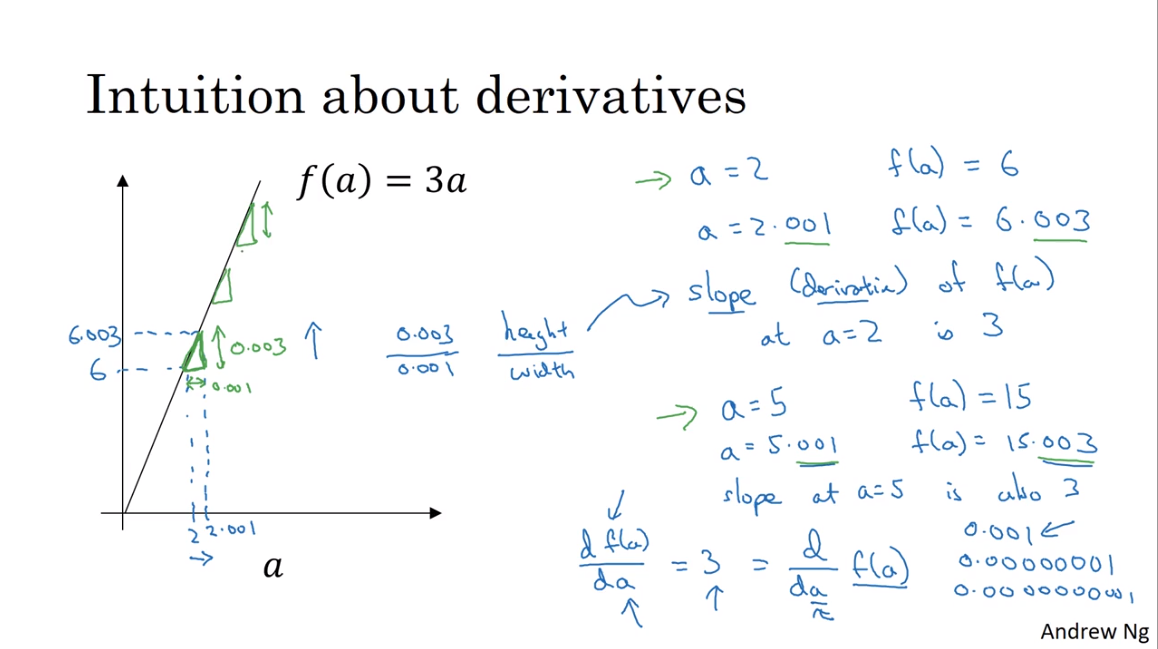 Intuition about derivatives
f(a) = 3a
6.003
6
0.003
0.001
2 2.001
a
0.003
0.001
height
width
→ a = 2 f(a) = 6
a = 2.001 f(a) = 6.003
→ slope (derivative) of f(a)
at a=2 is 3
→ a = 5 f(a) = 15
a = 5.001 f(a) = 15.003
slope at a=5 is also 3
d f(a)
da
= 3 =
d
da
f(a)
0.001 ←
0.00000001
0.0000000001
Andrew Ng